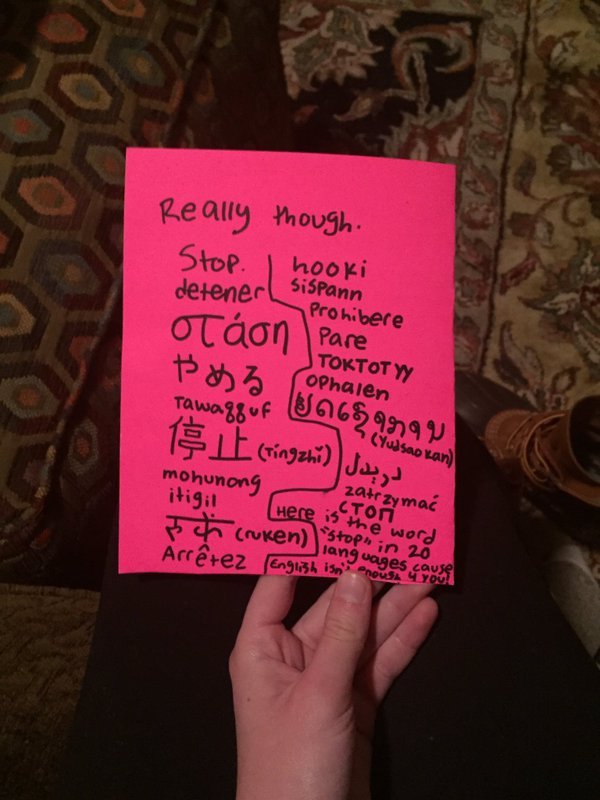 Really though.
Stop.
detener
στάση
やめる
Tawaqquf
停止 (Tíngzhǐ)
mohunong
itigil
(ruken)
Arrêtez
hooki
sispann
Prohibere
Pare
ТОКТОТУУ
Ophalen
(Yudsaokan)
zatrzymać
СТОП
Here is the word
"stop" in 20
languages cause
English isn't enough 4 you!